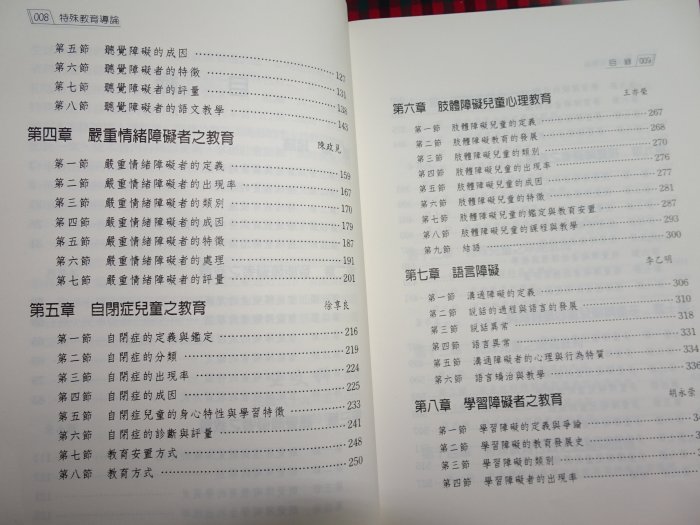 008 特殊教育導論
第五節 聽覺障礙的成因 127
第六節 聽覺障礙者的特徵 131
第七節 聽覺障礙者的評量 138
第八節 聽覺障礙者的語文教學 143
第四章 嚴重情緒障礙者之教育 陳政見
第一節 嚴重情緒障礙者的定義 159
第二節 嚴重情緒障礙者的出現率 167
第三節 嚴重情緒障礙者的類別 170
第四節 嚴重情緒障礙者的成因 179
第五節 嚴重情緒障礙者的特徵 187
第六節 嚴重情緒障礙者的處理 191
第七節 嚴重情緒障礙者的評量 201
第五章 自閉症兒童之教育 徐享良
第一節 自閉症的定義與鑑定 216
第二節 自閉症的分類 219
第三節 自閉症的出現率 224
第四節 自閉症的成因 225
第五節 自閉症兒童的身心特性與學習特徵 233
第六節 自閉症的診斷與評量 241
第七節 教育安置方式 248
第八節 教育方式 250
目錄 009
第六章 肢體障礙兒童心理教育 王亦榮
第一節 肢體障礙兒童的定義 267
第二節 肢體障礙教育的發展 268
第三節 肢體障礙兒童的類別 270
第四節 肢體障礙兒童的出現率 276
第五節 肢體障礙兒童的成因 277
第六節 肢體障礙兒童的特徵 281
第七節 肢體障礙兒童的鑑定與教育安置 287
第八節 肢體障礙兒童的課程與教學 293
第九節 結語 300
第七章 語言障礙 李乙明
第一節 溝通障礙的定義 306
第二節 說話的過程與語言的發展 310
第三節 說話異常 318
第四節 語言異常 331
第五節 溝通障礙者的心理與行為特質 334
第六節 語言矯治與教學 336
第八章 學習障礙者之教育 胡永崇
第一節 學習障礙的定義與爭論
第二節 學習障礙的教育發展史
第三節 學習障礙的類別
第四節 學習障礙者的出現率